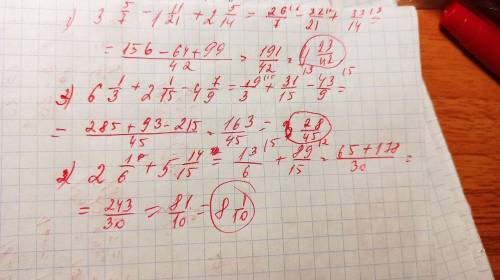 1) 3 5/7 - 1 11/21 + 2 5/14 = 26/7 - 32/21 + 33/14 =
= 156-64+99/42 = 191/42 = 23/42
3) 6 1/3 + 2 1/15 - 4 7/9 = 19/3 + 31/15 - 43/9 =
= 285+93-215/45 = 163/45 = 3 28/45
2) 2 1/6 + 5 14/15 = 13/6 + 89/15 = 65+178/30 =
= 243/30 = 81/10 = 8 1/10